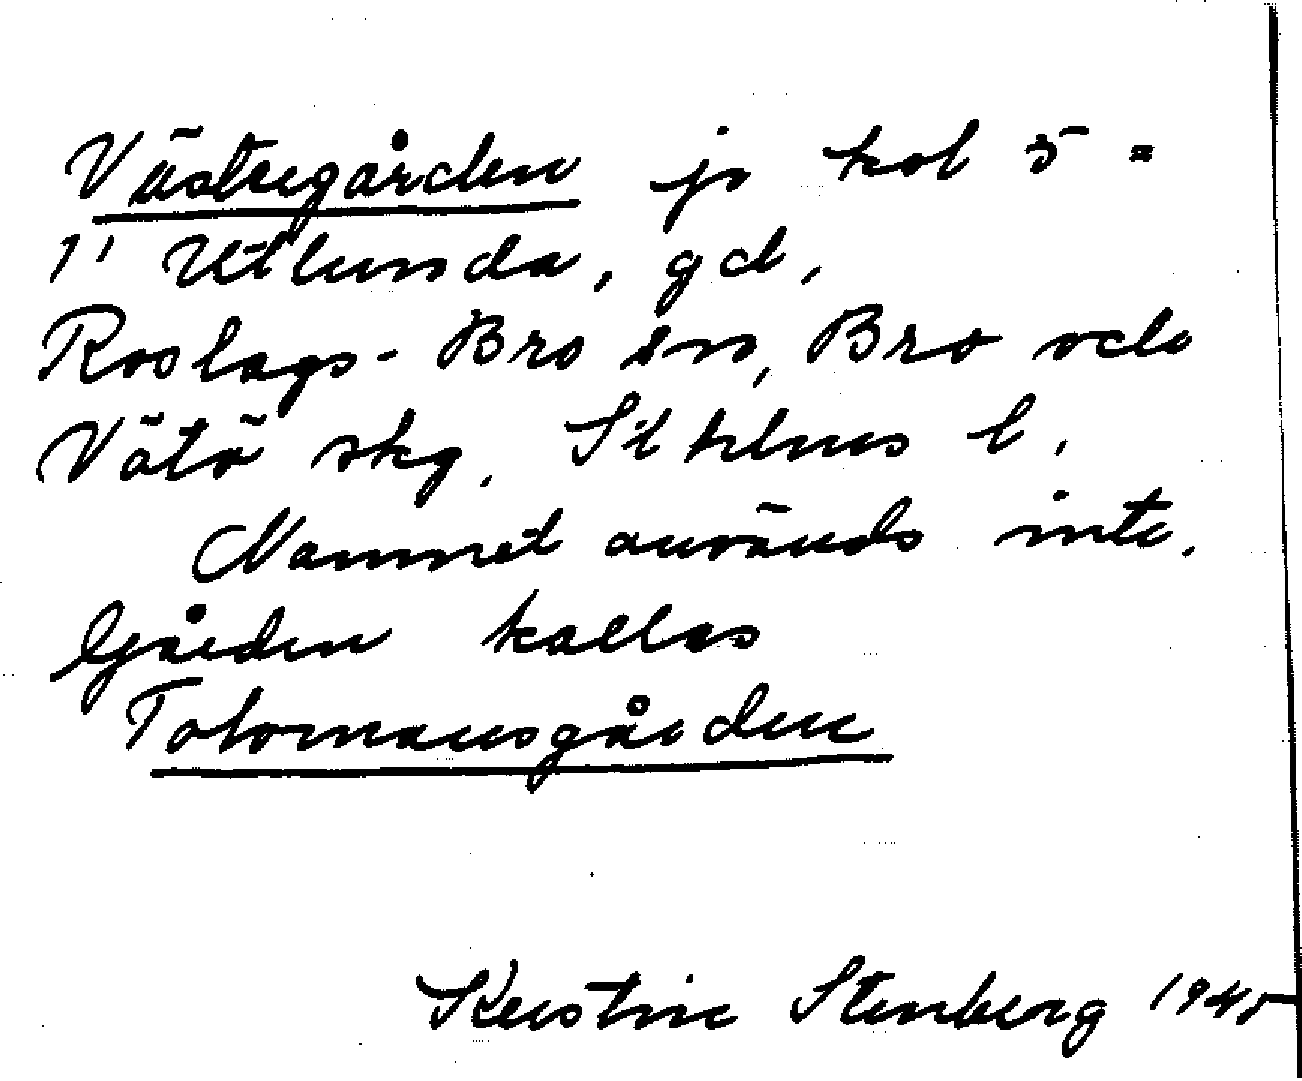 Västregården jo kob 5 =
1¹ Utlunda, gd,
Roslags-Bro sn, Bro och
Vätö skg. Sthlms l.
Namnet används inte.
Gården kallas
Tolvmansgården
Kerstin Stenberg 1945